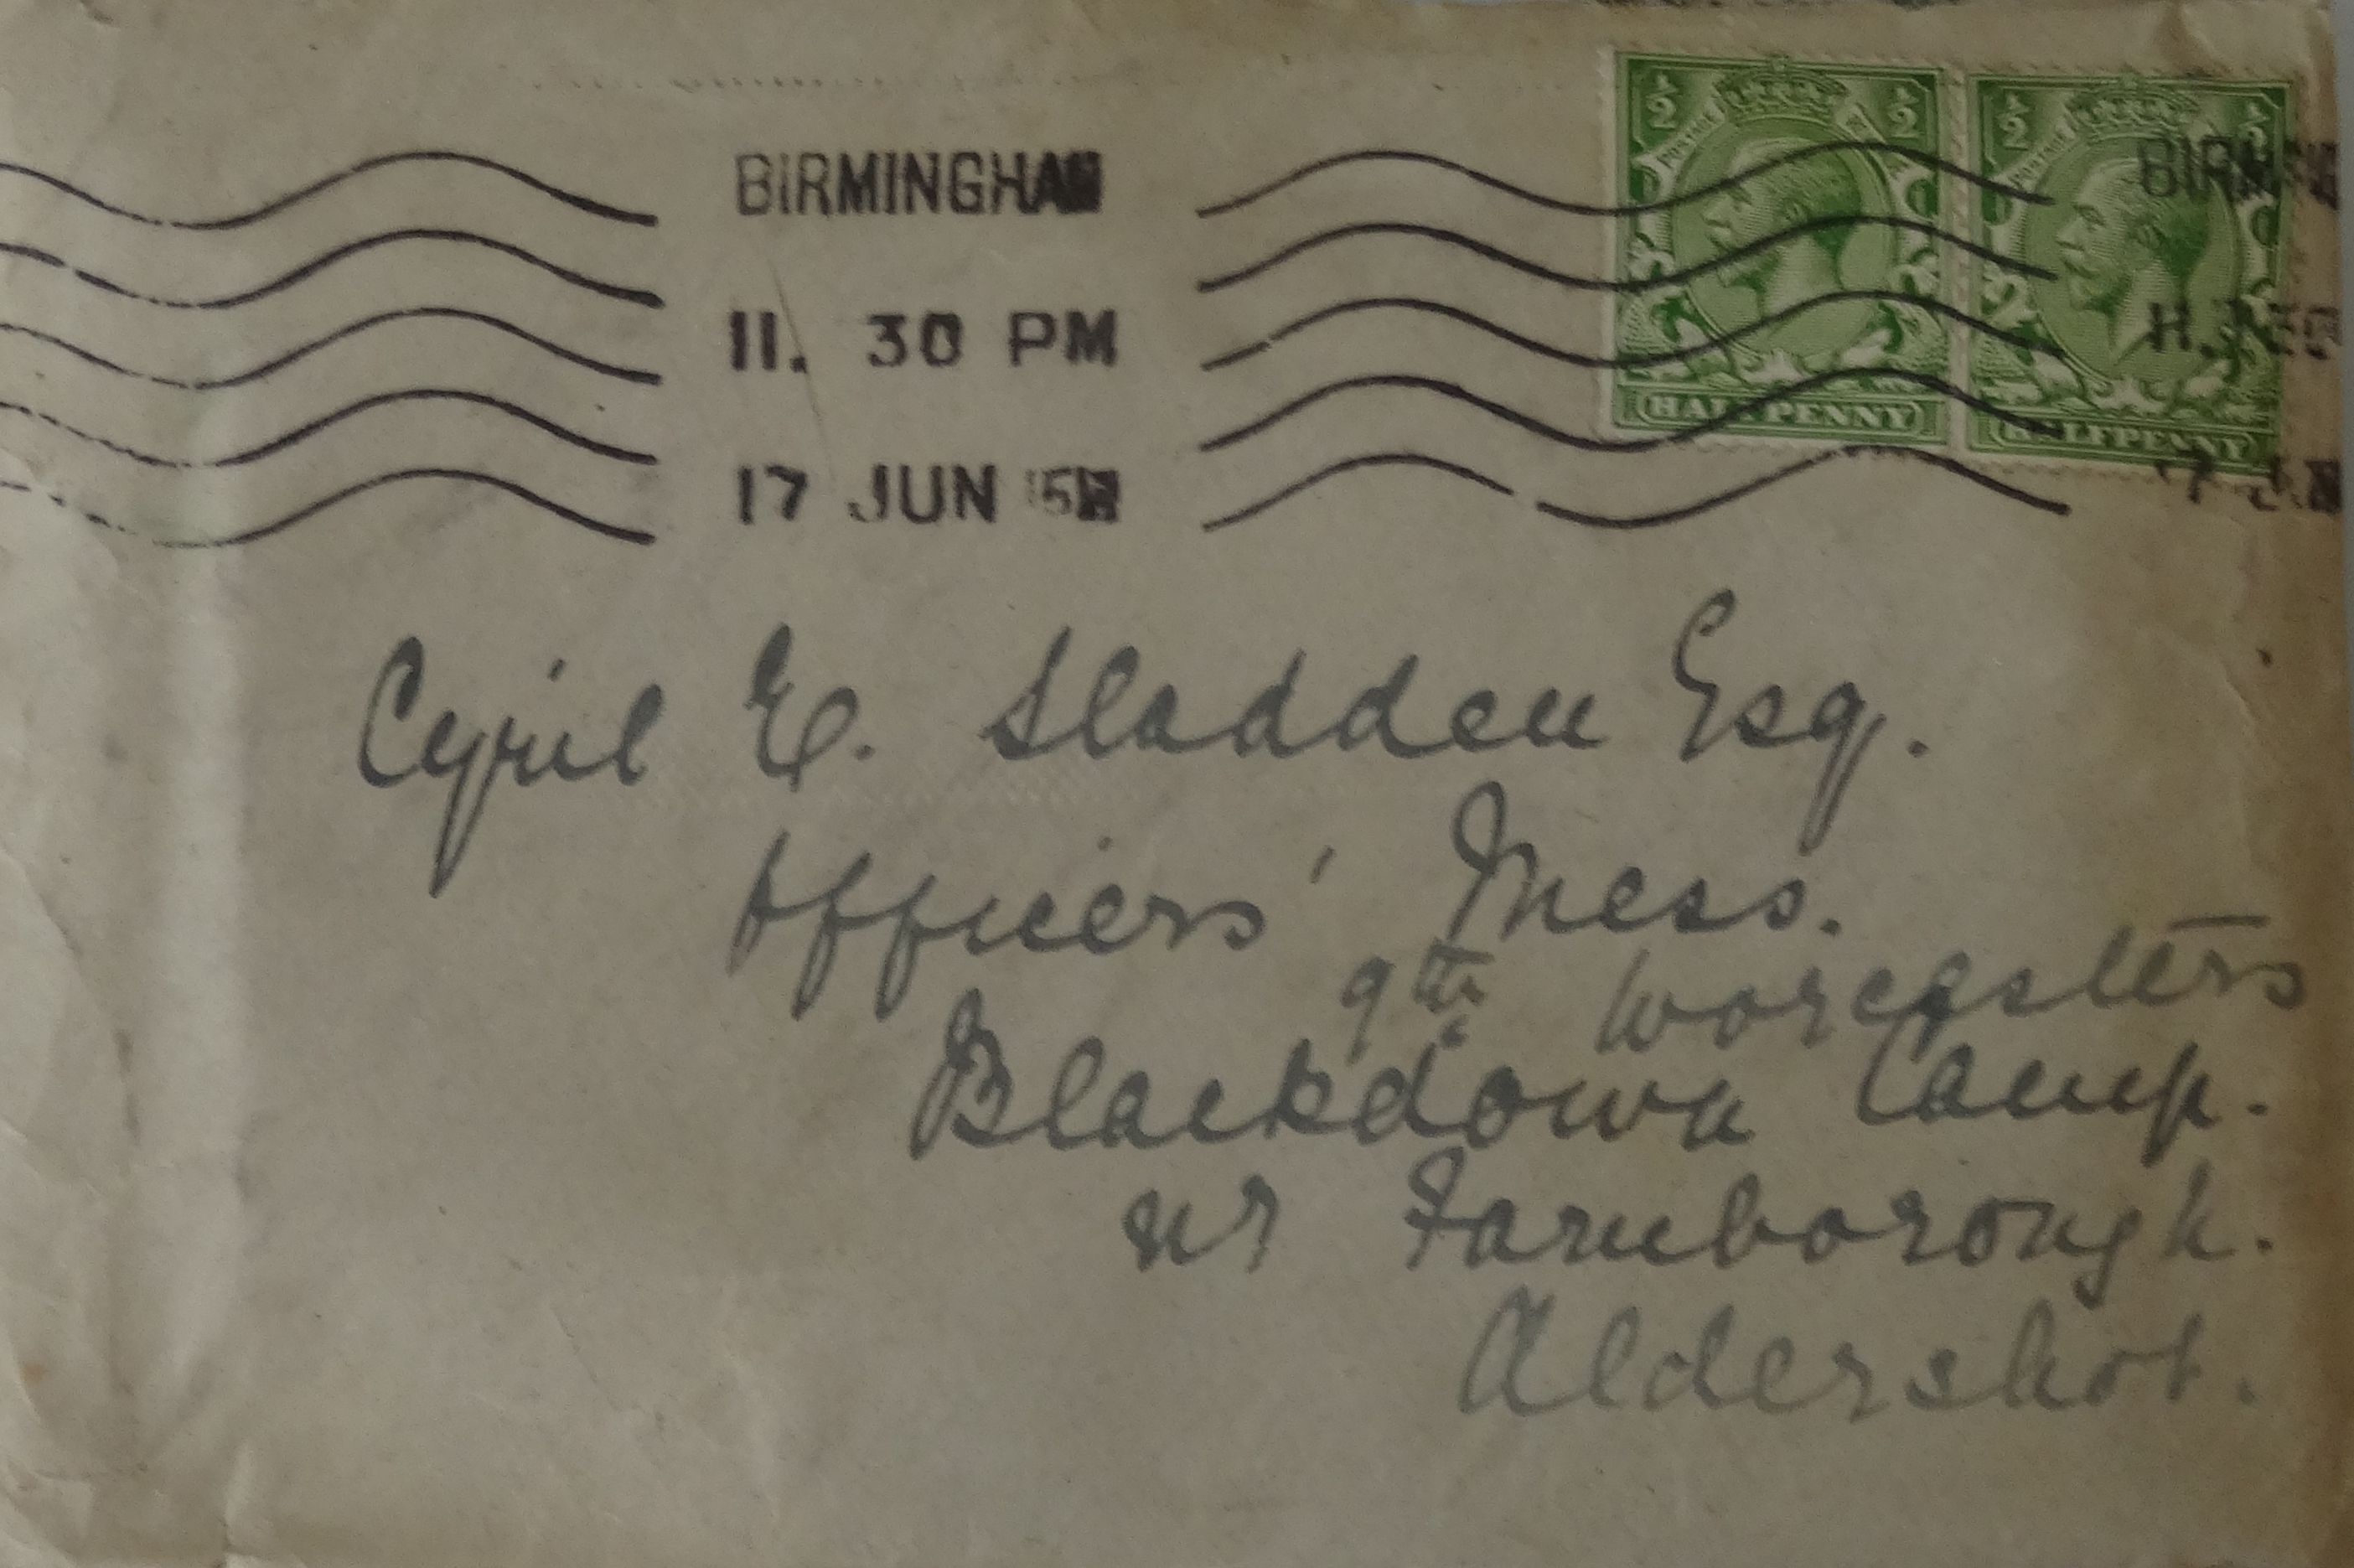 BIRMINGHAM
11. 30 PM
17 JUN 15
½ ½
HALFPENNY
½ ½
HALFPENNY
Cyril E. Sladden Esq.
Officers' Mess.
9th Worcesters
Blackdown Camp.
nr Farnborough.
Aldershot.